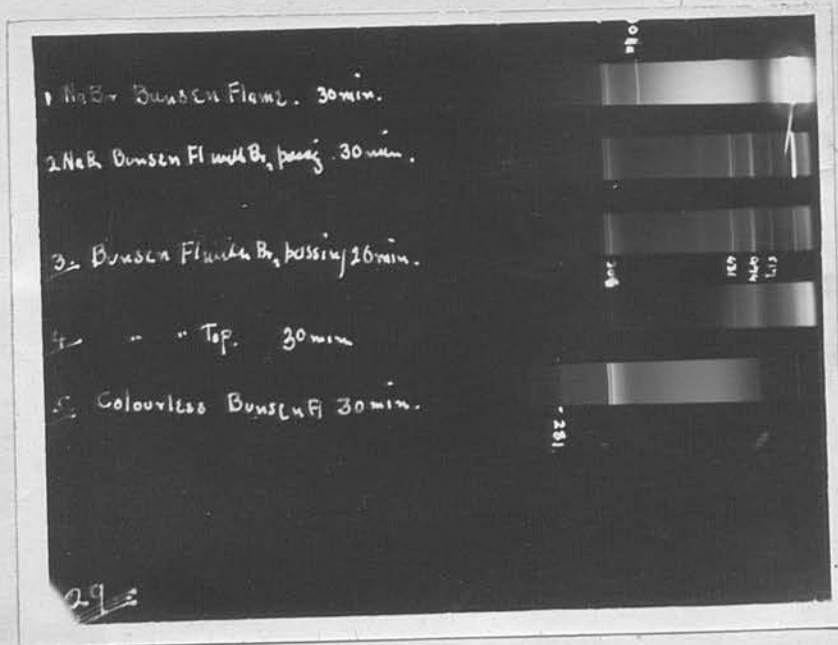 1 NaBr Bunsen Flame. 30 min.
2 NaBr Bunsen Fl with Br₂ passing 30 min.
3. Bunsen Fl with Br₂ passing 26 min.
4. " " Top. 30 min
5. Colourless Bunsen Fl 30 min.
281
29